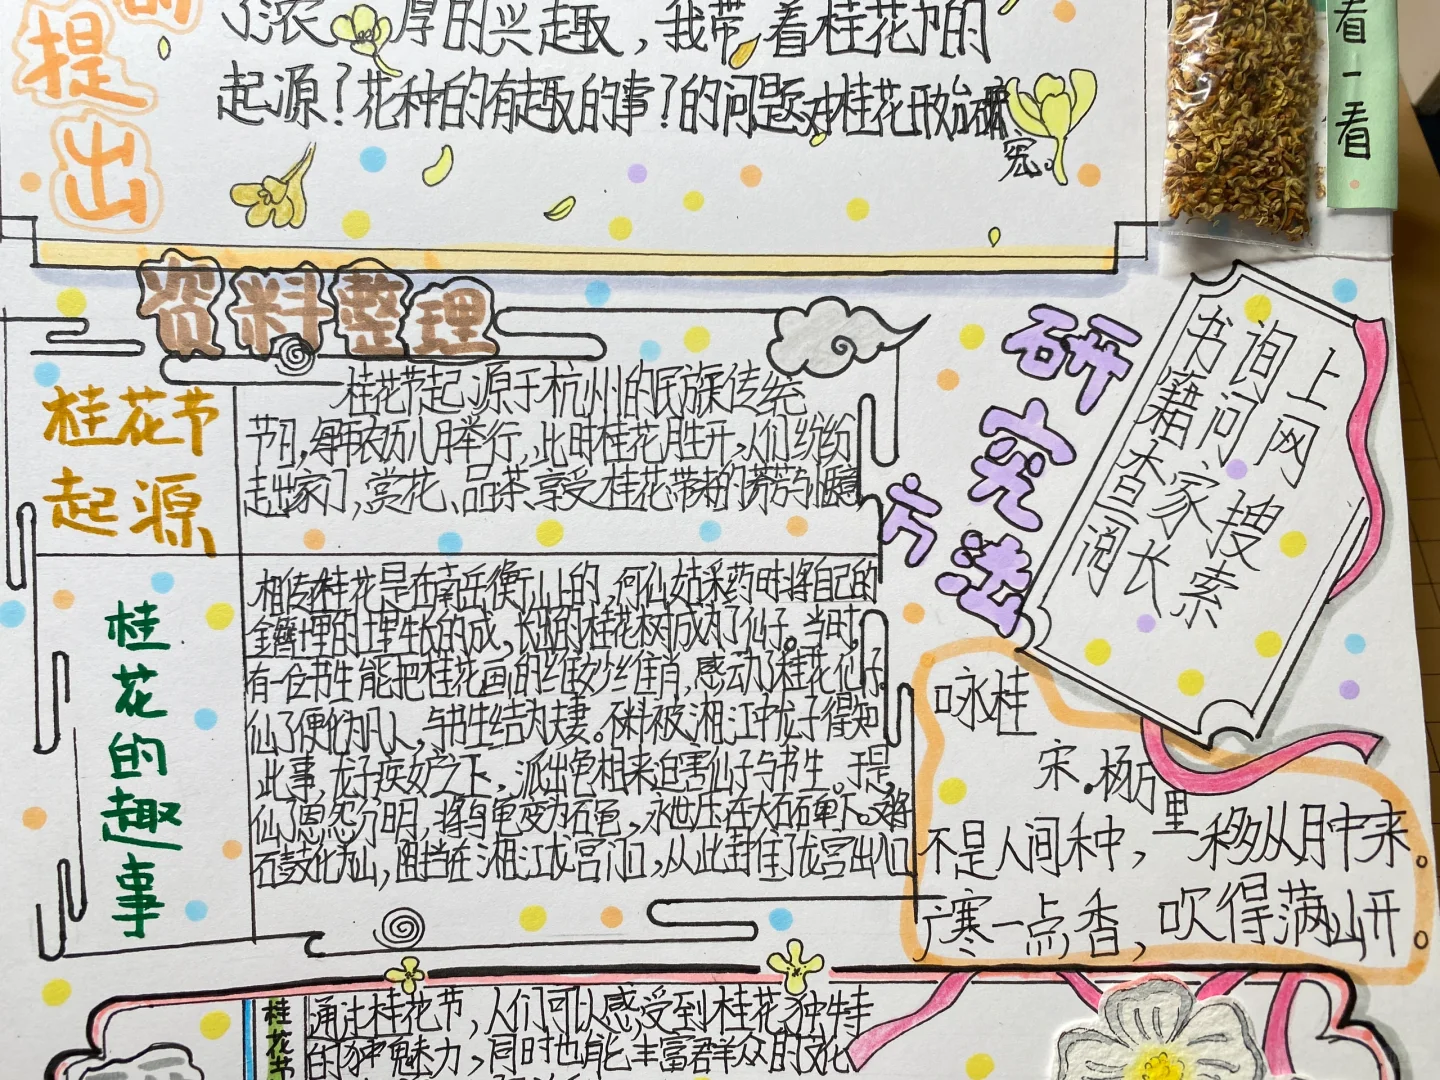 提出
了浓厚的兴趣，我带着桂花的
起源？花种的有趣的事？的问题对桂花开始研
究。
看一看
资料整理
桂花节
起源
桂花节起源于杭州的民族传统
节日，每年农历八月举行，此时桂花盛开，人们纷纷
走出家门，赏花、品茶、享受桂花带来的芬芳与惬意
桂花的趣事
相传桂花是在南岳衡山上的，何仙姑采药时将自己的
金簪埋的土里生长的成，长出的桂花树成就了仙子。当时，
有一位书生能把桂花画的维妙维肖，感动了桂花仙子。
仙子便化为凡人，与书生结为夫妻。不料被湘江中龙子得知
此事，龙子疾妒之下，派出龟相来迫害仙子与书生。于是，
仙子恩怨分明，将乌龟变为石龟，永世压在大石下。又将
石鼓化为山，阻挡在湘江龙宫门口，从此封住了龙宫出口
研究方法
上网搜索
询问家长
书籍查阅
咏桂
宋.杨万里
不是人间种，移从月中来。
广寒一点香，吹得满山开。
桂花节
通过桂花节，人们可以感受到桂花独特
的魅力，同时也能丰富群众的文化